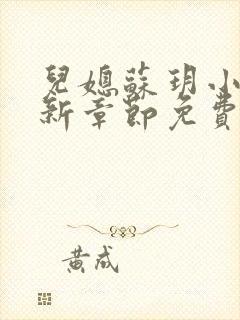 兒媳蘇玥小
新章節免費
黃成